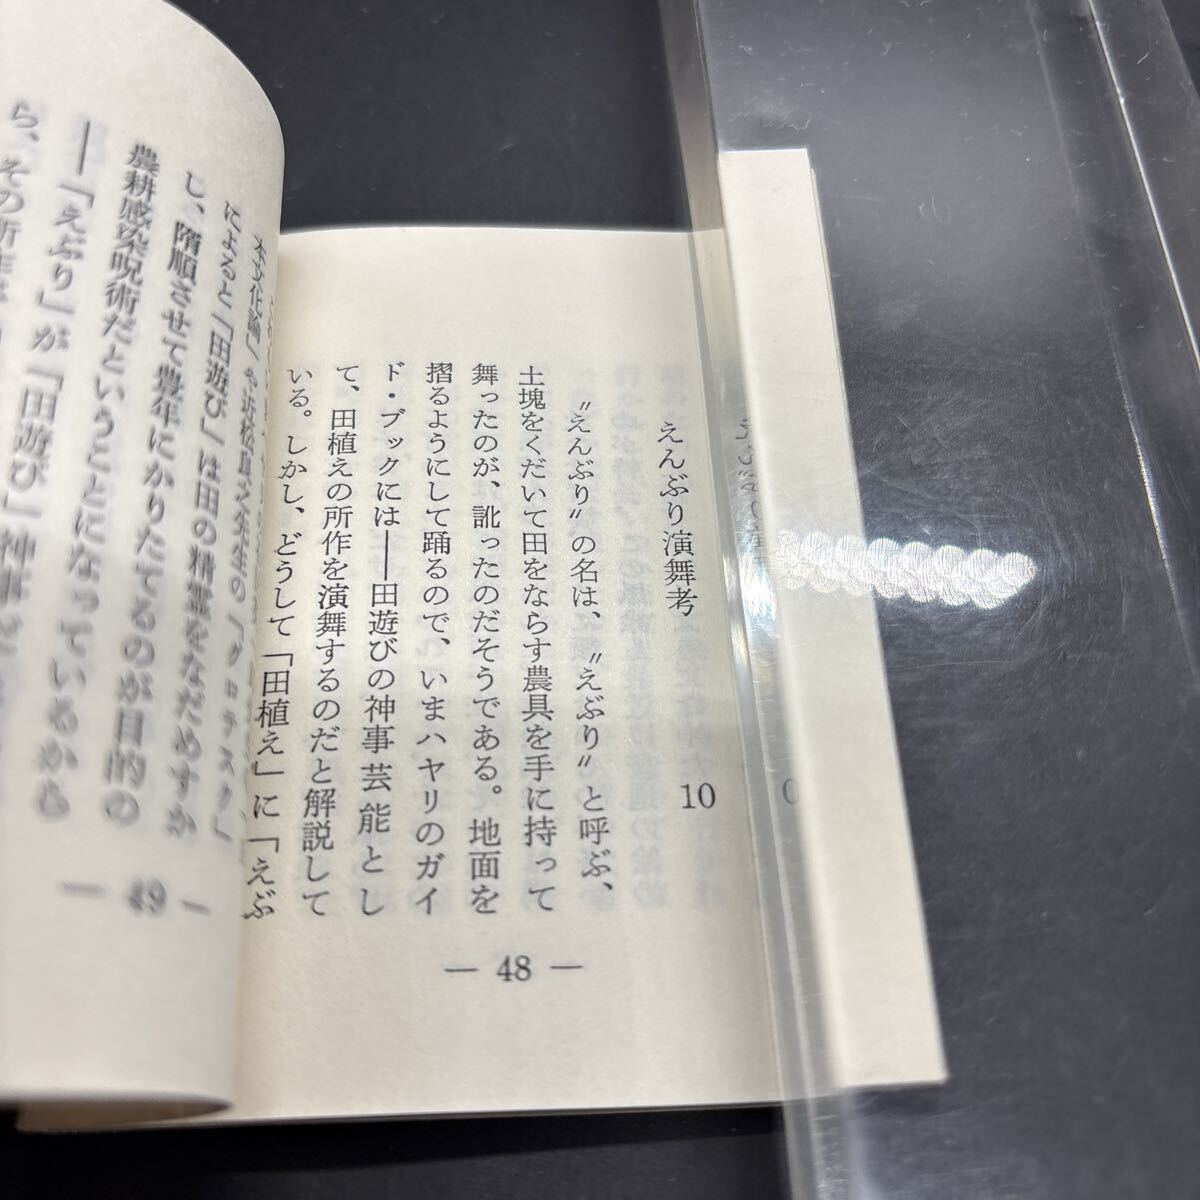 10
えんぶり演舞考
〝えんぶり〟の名は、〝えぶり〟と呼ぶ、
土塊をくだいて田をならす農具を手に持って
舞ったのが、訛ったのだそうである。地面を
摺るようにして踊るので、いまハヤリのガイ
ド・ブックには――田遊びの神事芸能とし
て、田植えの所作を演舞するのだと解説して
いる。しかし、どうして「田植え」に「えぶ
— 48 —
本文化論」や近松良之先生の「グロテスク」
によると「田遊び」は田の精霊をなだめすか
し、隋順させて豊年にかりたてるのが目的の
農耕感染呪術だということになっているから
――「えぶり」が「田遊び」神事
ら、その所作
— 49 —